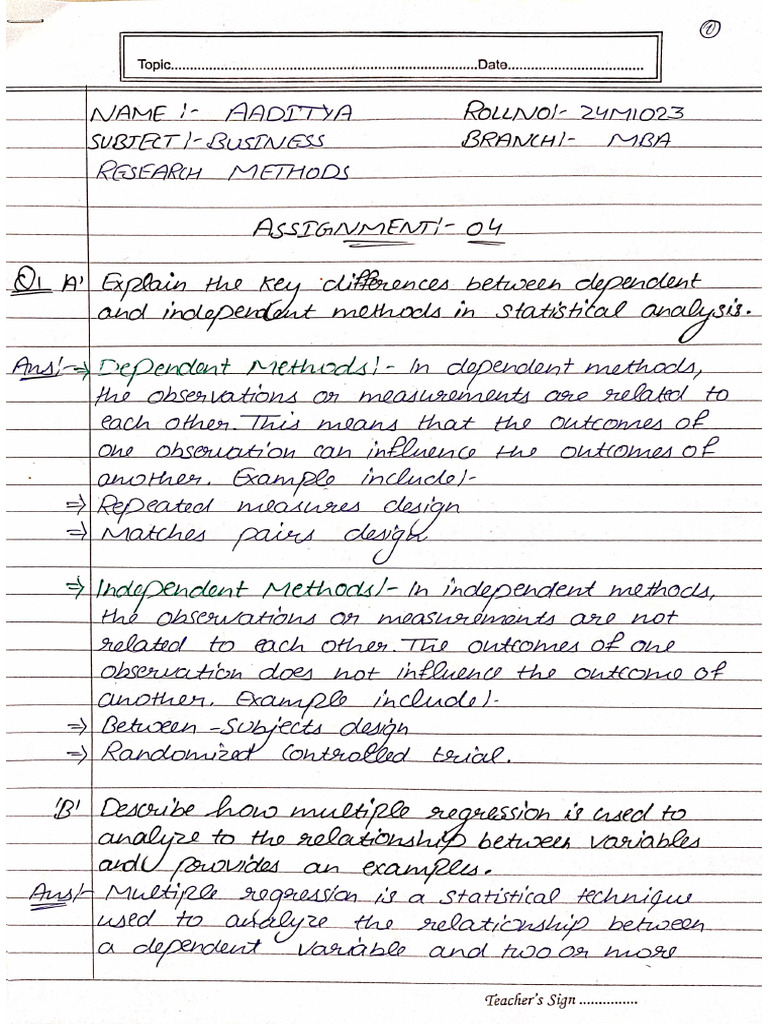 1
Topic....................Date....................
NAME :- AADITYA ROLLNO:- 24M1023
SUBJECT :- BUSINESS BRANCH:- MBA
RESEARCH METHODS
ASSIGNMENT:- 04
Q1 A' Explain the key differences between dependent
and independent methods in statistical analysis.
Ans:- ⇒ Dependent Methods:- In dependent methods,
the observations or measurements are related to
each other. This means that the outcomes of
one observation can influence the outcomes of
another. Example include:-
⇒ Repeated measures design
⇒ Matches pairs design
⇒ Independent Methods:- In independent methods,
the observations or measurements are not
related to each other. The outcomes of one
observation does not influence the outcome of
another. Example include:-
⇒ Between-Subjects design
⇒ Randomized Controlled trial.
'B' Describe how multiple regression is used to
analyze to the relationship between variables
and provides an examples.
Ans:- Multiple regression is a statistical technique
used to analyze the relationship between
a dependent variable and two or more
Teacher's Sign ...............